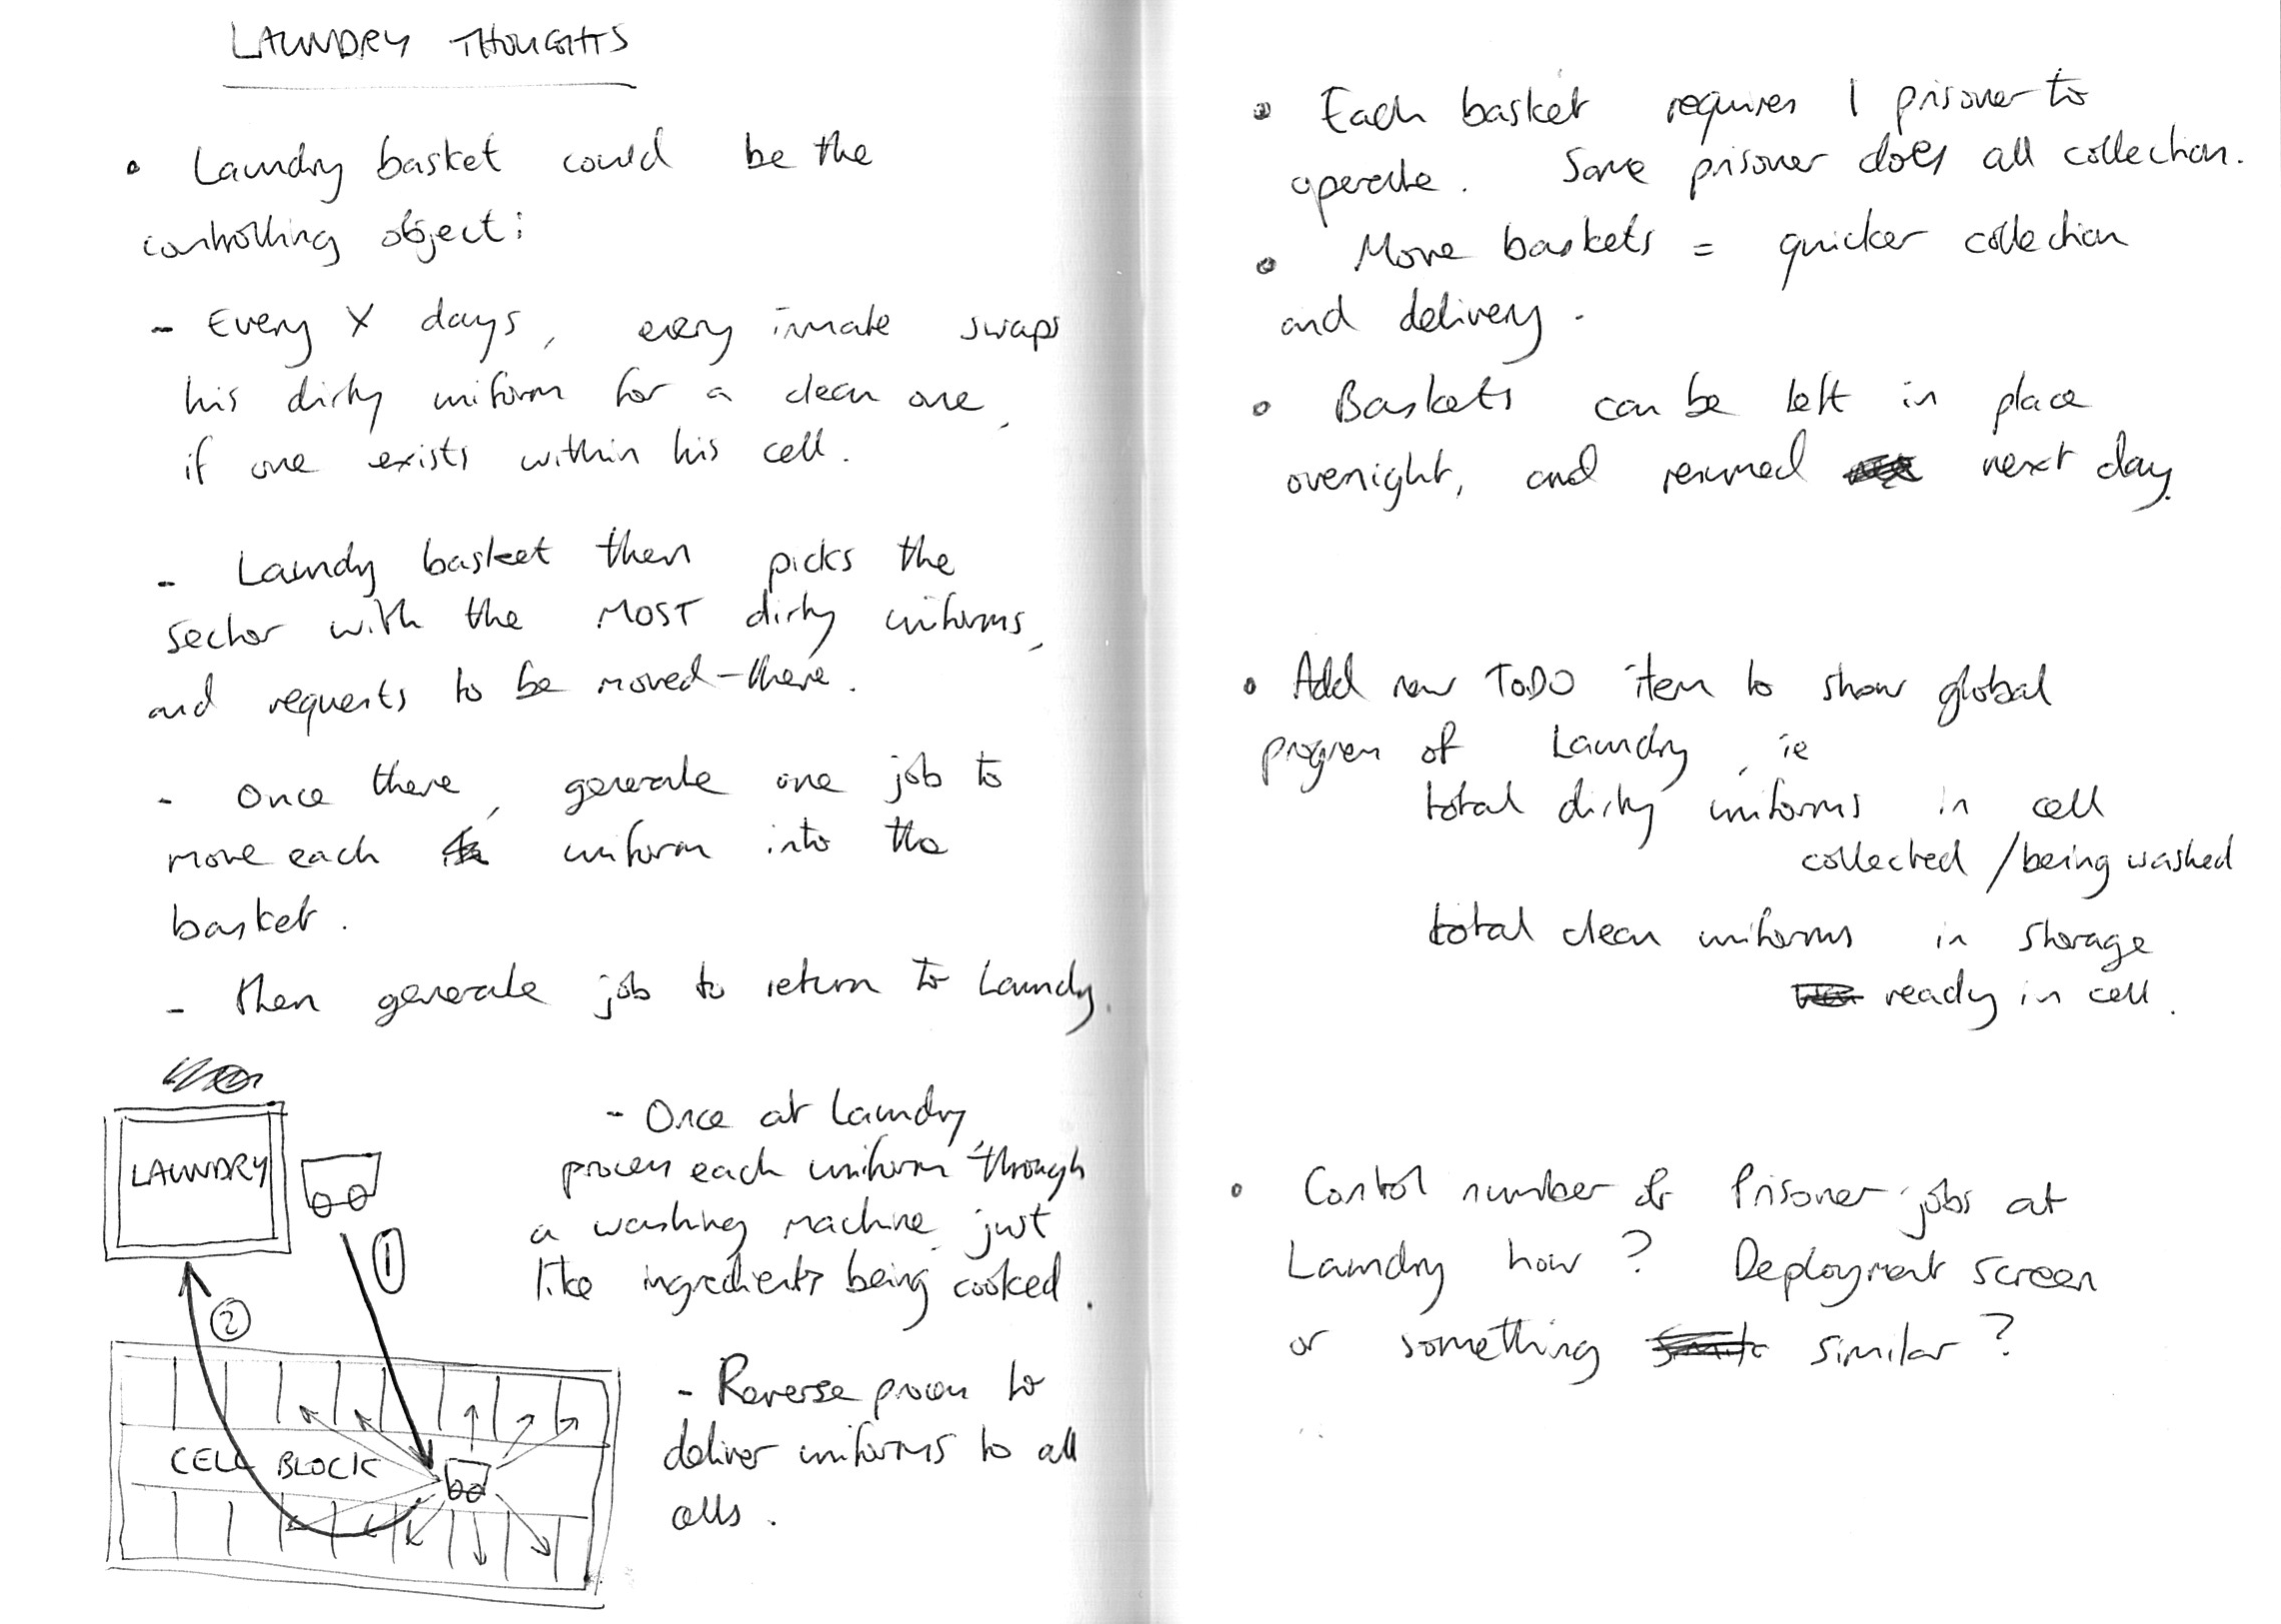 LAUNDRY THOUGHTS
• Laundry basket could be the
controlling object:
- Every X days, every inmate swaps
his dirty uniform for a clean one,
if one exists within his cell.
- Laundry basket then picks the
sector with the MOST dirty uniforms,
and requests to be moved there.
- Once there, generate one job to
move each uniform into the
basket.
- Then generate job to return to Laundry.
- Once at Laundry,
process each uniform through
a washing machine, just
like ingredients being cooked.
- Reverse process to
deliver uniforms to all
cells.
LAUNDRY
1
2
CELL BLOCK
• Each basket requires 1 prisoner to
operate. Same prisoner does all collection.
• More baskets = quicker collection
and delivery.
• Baskets can be left in place
overnight, and resumed next day.
• Add new TODO item to show global
progress of Laundry, ie
total dirty uniforms in cell
collected / being washed
total clean uniforms in storage
ready in cell.
• Control number of Prisoner jobs at
Laundry how? Deployment screen
or something similar?